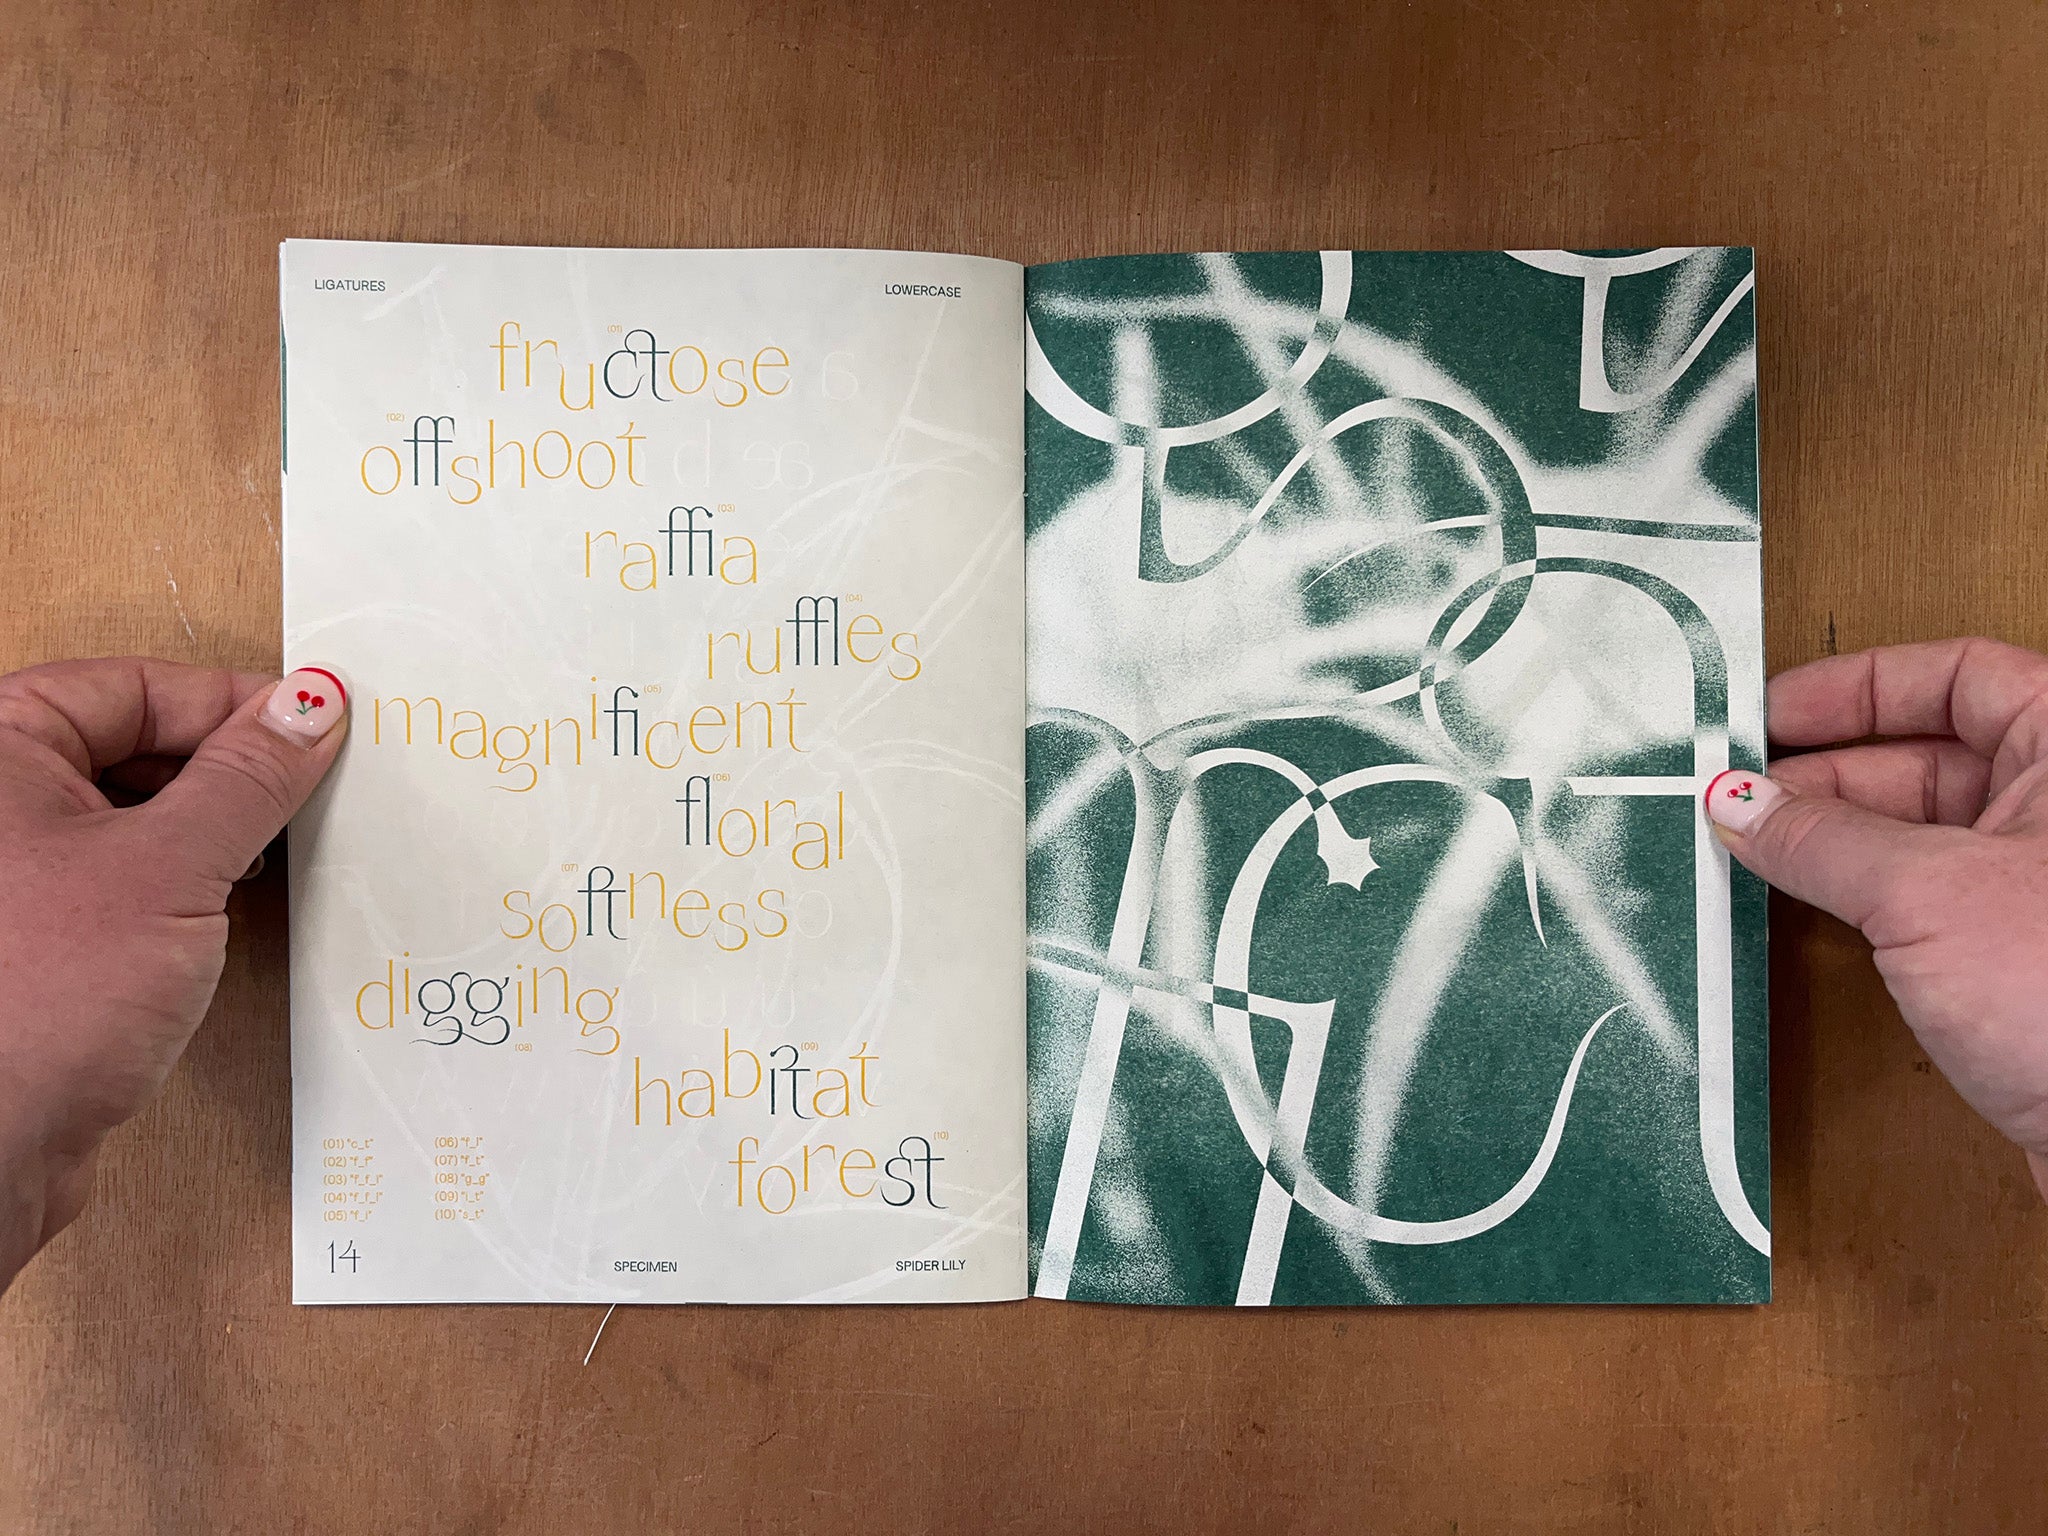 LIGATURES
LOWERCASE
(01)
fructose
(02)
offshoot
(03)
raffia
(04)
ruffles
(05)
magnificent
(06)
floral
(07)
softness
digging
(08)
(09)
habitat
(10)
forest
(01) "c_t"
(02) "f_f"
(03) "f_f_i"
(04) "f_f_l"
(05) "f_i"
(06) "f_l"
(07) "f_t"
(08) "g_g"
(09) "i_t"
(10) "s_t"
14
SPECIMEN
SPIDER LILY